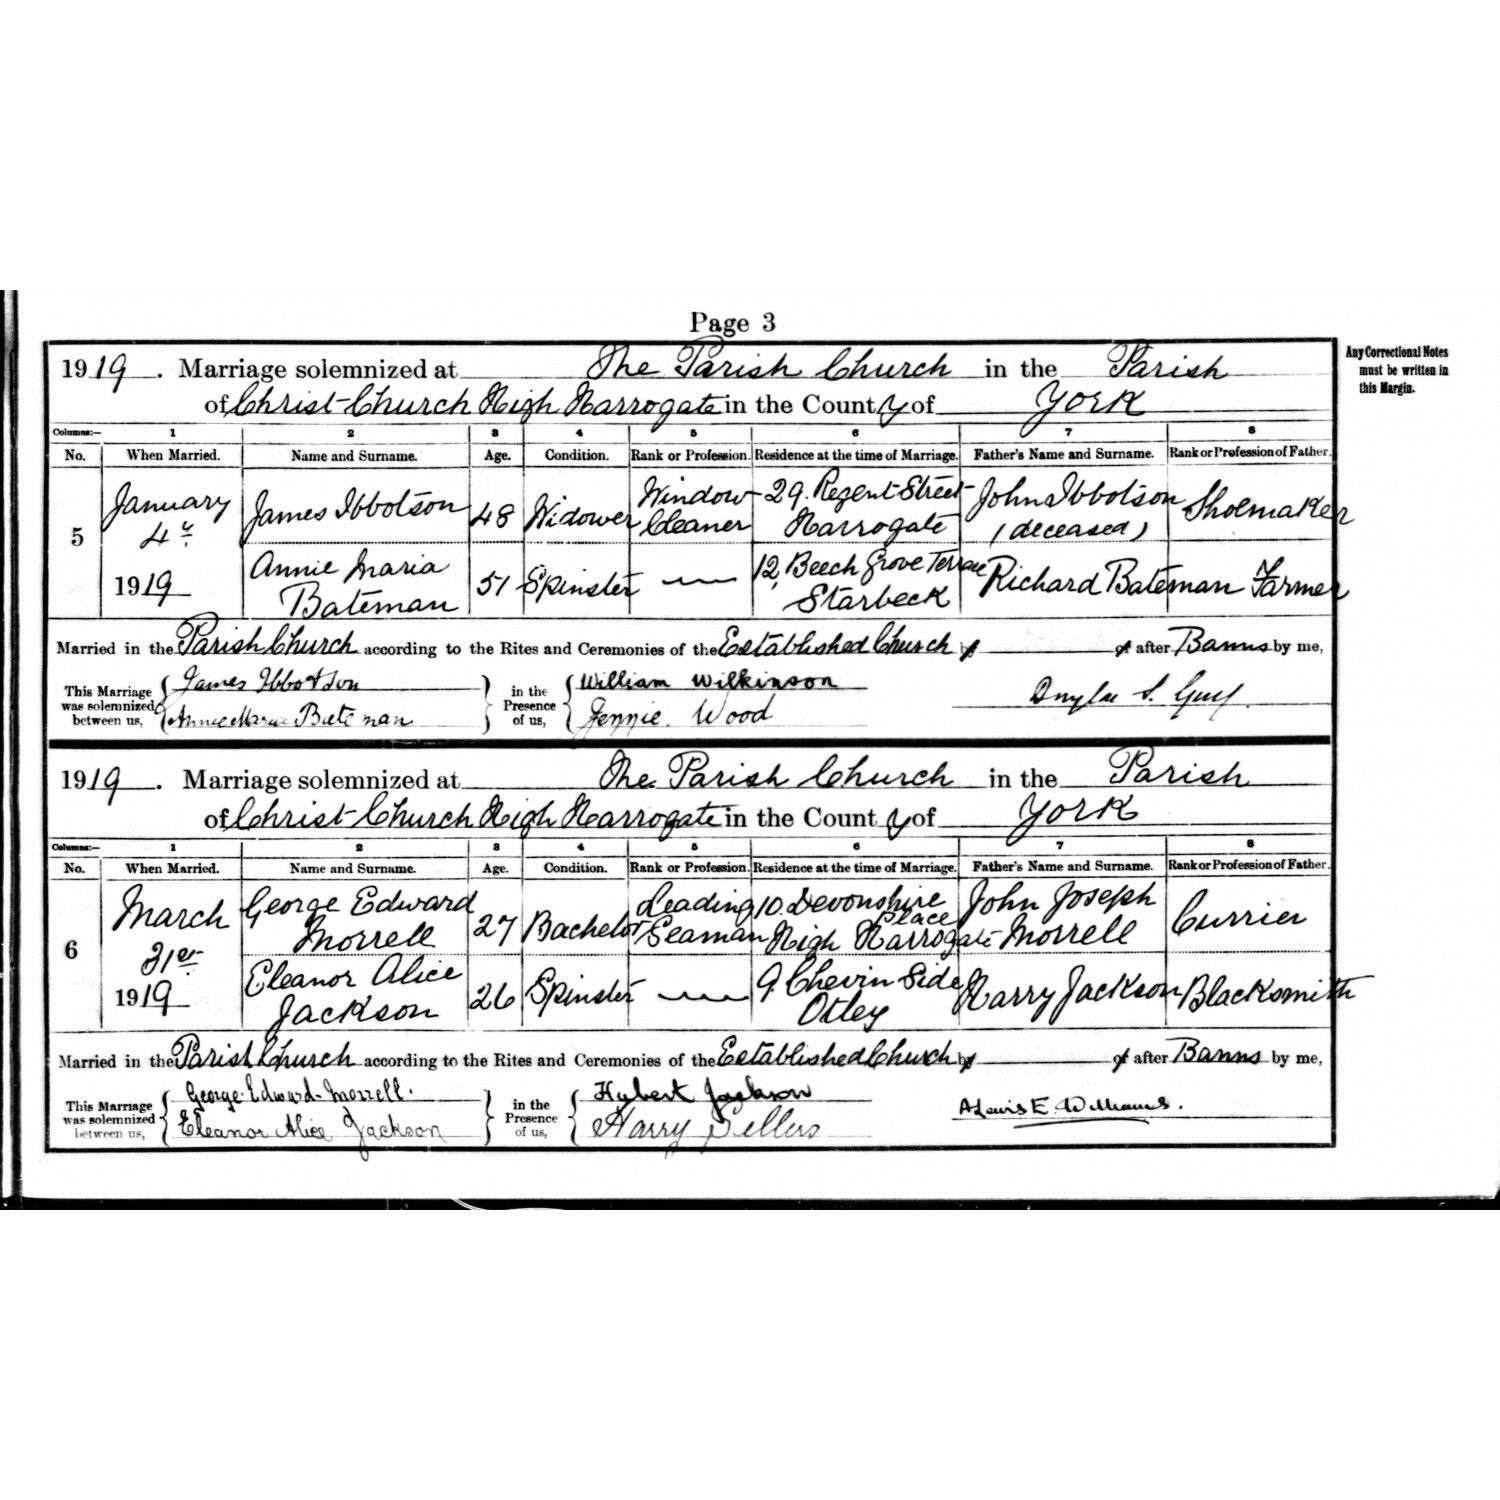 Page 3
Any Correctional Notes
must be written in
this Margin.
1919. Marriage solemnized at The Parish Church in the Parish
of Christ Church High Harrogate in the County of York
Columns:— 1 2 3 4 5 6 7 8
No. When Married. Name and Surname. Age. Condition. Rank or Profession. Residence at the time of Marriage. Father's Name and Surname. Rank or Profession of Father.
5 January 4th 1919 James Ibbotson 48 Widower Window Cleaner 29. Regent Street Harrogate John Ibbotson (deceased) Shoemaker
Annie Maria Bateman 51 Spinster — 12, Beech Grove Terrace Starbeck Richard Bateman Farmer
Married in the Parish Church according to the Rites and Ceremonies of the Established Church by of after Banns by me,
This Marriage was solemnized between us, James Ibbotson in the Presence of us, William Wilkinson
Annie Maria Bateman Jennie Wood
1919. Marriage solemnized at The Parish Church in the Parish
of Christ Church High Harrogate in the County of York
Columns:— 1 2 3 4 5 6 7 8
No. When Married. Name and Surname. Age. Condition. Rank or Profession. Residence at the time of Marriage. Father's Name and Surname. Rank or Profession of Father.
6 March 31st 1919 George Edward Morrell 27 Bachelor Leading Seaman 10. Devonshire Place High Harrogate John Joseph Morrell Currier
Eleanor Alice Jackson 26 Spinster — 9 Chevin Side Otley Harry Jackson Blacksmith
Married in the Parish Church according to the Rites and Ceremonies of the Established Church by of after Banns by me,
This Marriage was solemnized between us, George Edward Morrell. in the Presence of us, Hubert Jackson A Lewis E. Williams.
Eleanor Alice Jackson Harry Sellers